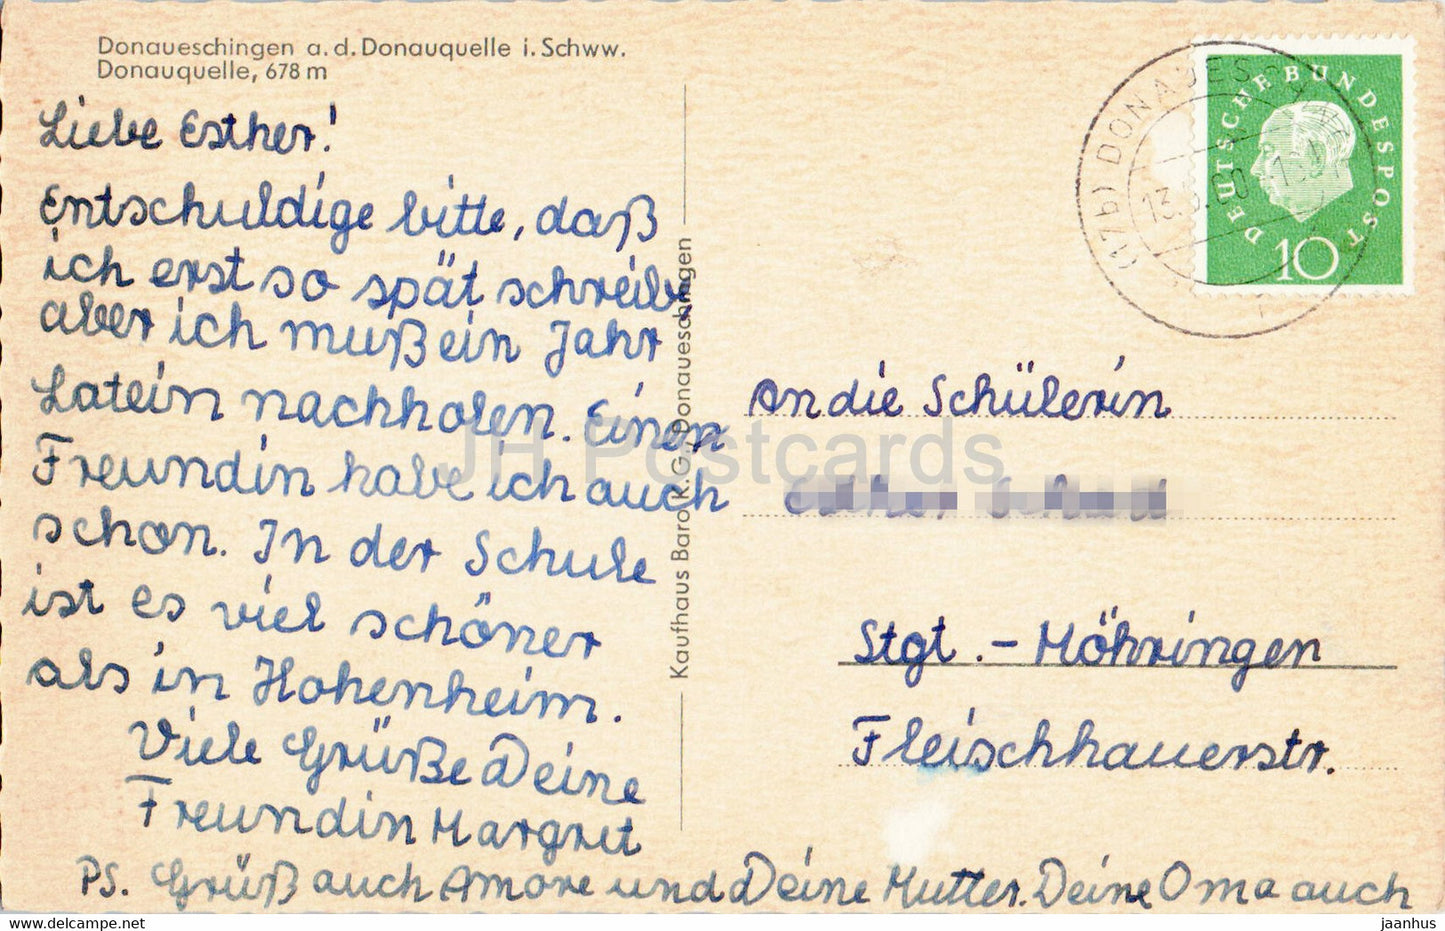 Donaueschingen a. d. Donauquelle i. Schww.
Donauquelle, 678 m
Liebe Esther!
Entschuldige bitte, daß
ich erst so spät schreibe
aber ich muß ein Jahr
Latein nachholen. Einen
Freundin habe ich auch
schon. In der Schule
ist es viel schöner
als in Hohenheim.
Viele Grüße Deine
Freundin Margret
PS. Grüß auch Amore und Deine Mutter. Deine Oma auch
Kaufhaus Baro K.G., Donaueschingen
(17b) DONAUESCHINGEN
13.5.60
DEUTSCHE BUNDESPOST
10
An die Schülerin
Stgt.-Möhringen
Fleischhauerstr.
JH Postcards
delcampe.net
jaanhus